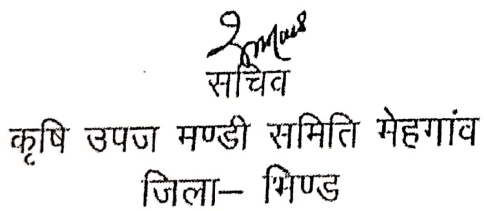 सचिव
कृषि उपज मण्डी समिति मेहगांव
जिला– भिण्ड